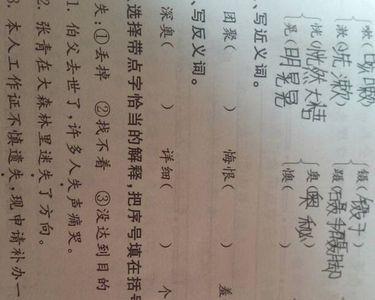 嗽(咳嗽) 镊(镊子)
漱(洗漱) 蹑(蹑手蹑脚)
恍( 奥(奥秘)
晃(明晃晃) 懊(
、写近义词。
团聚( ) 悔恨( ) 羞
、写反义词。
深奥( ) 详细( ) 个
选择带点字恰当的解释,把序号填在括号
失:①丢掉 ②找不着 ③没达到目的
1. 伯父去世了,许多人失声痛哭。
2. 张青在大森林里迷失了方向。
3. 本人工作证不慎遗失,现申请补办一